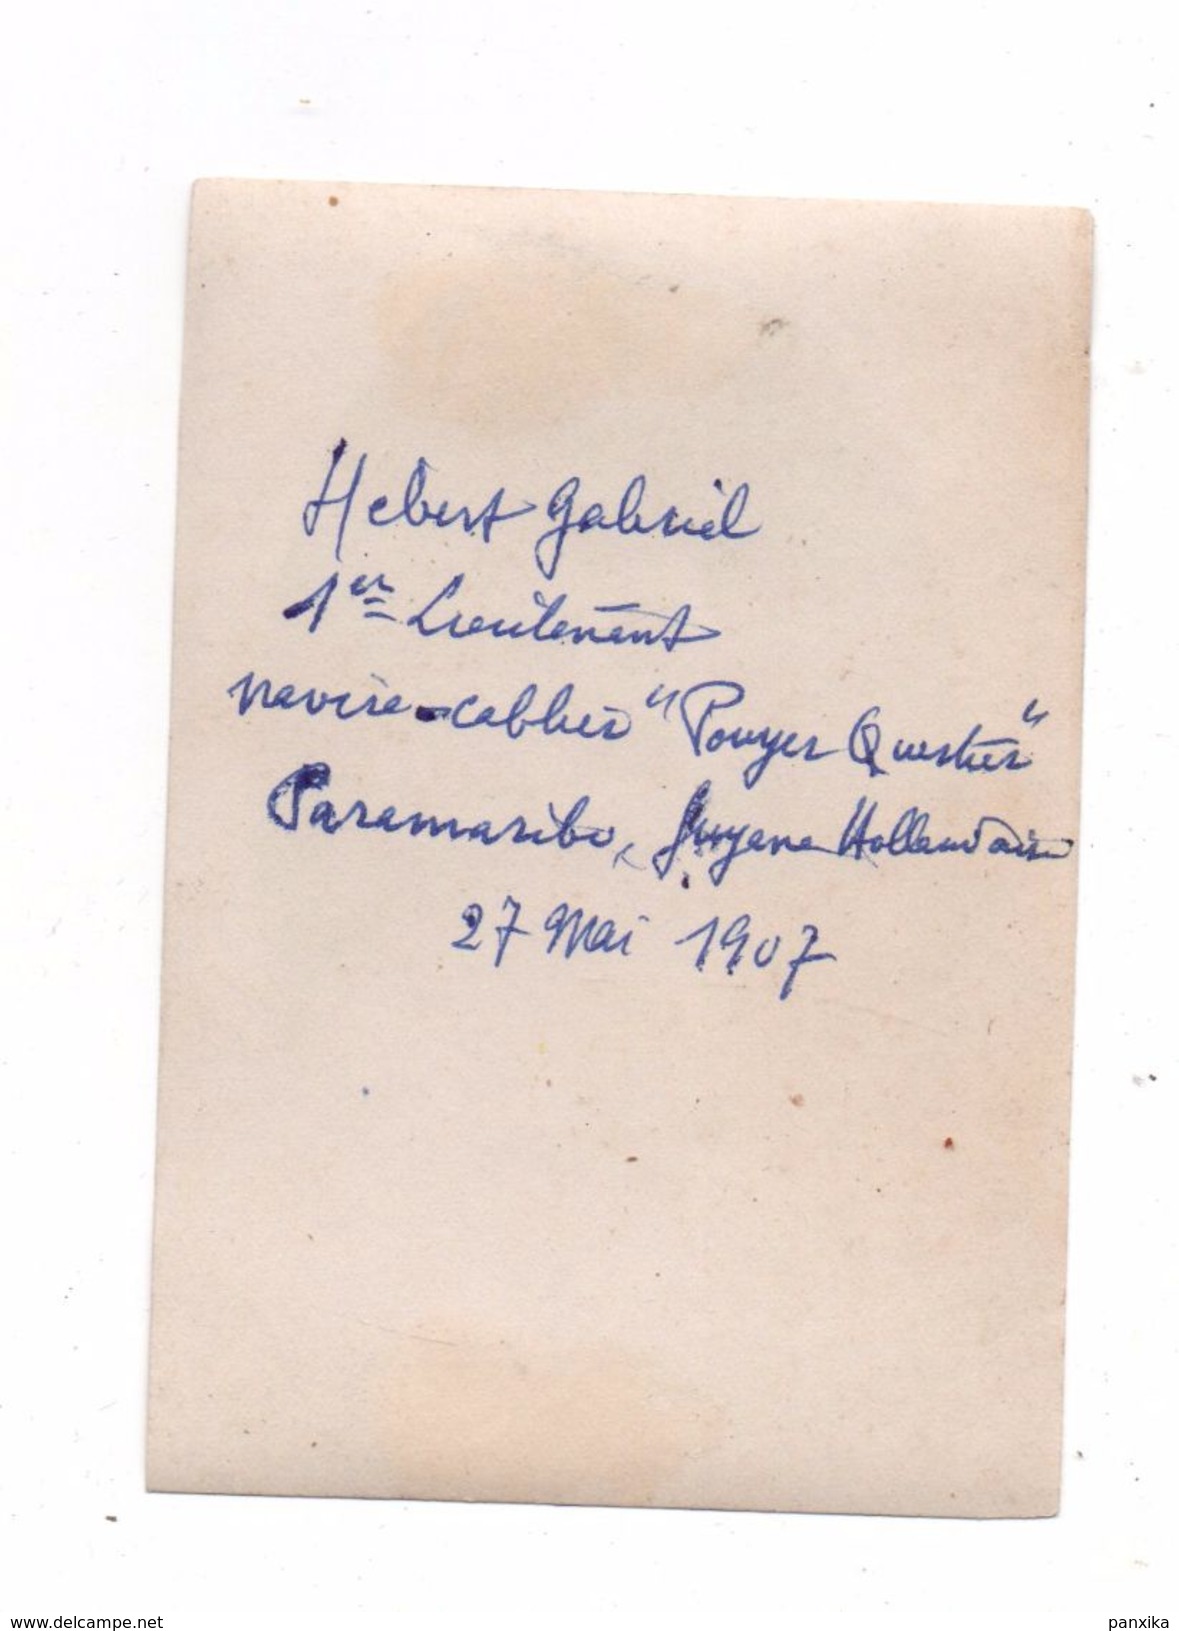 Hebert Gabriel
1er Lieutenant
navire-cablier "Pouyer Quertier"
Paramaribo, Guyane Hollandaise
27 Mai 1907
www.delcampe.net
panxika